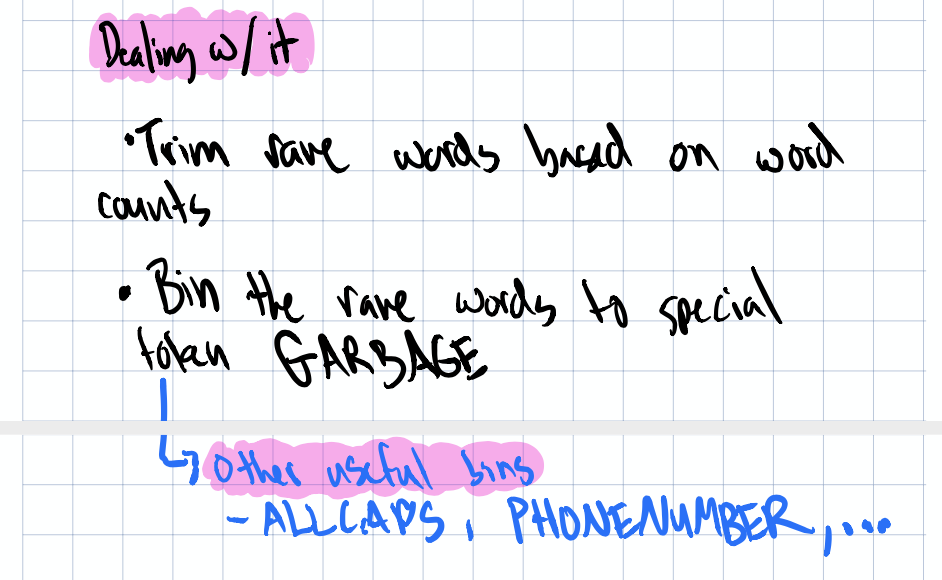 Dealing w/ it
• Trim rare words based on word
counts
• Bin the rare words to special
token GARBAGE
other useful bins
- ALLCAPS, PHONENUMBER, ...